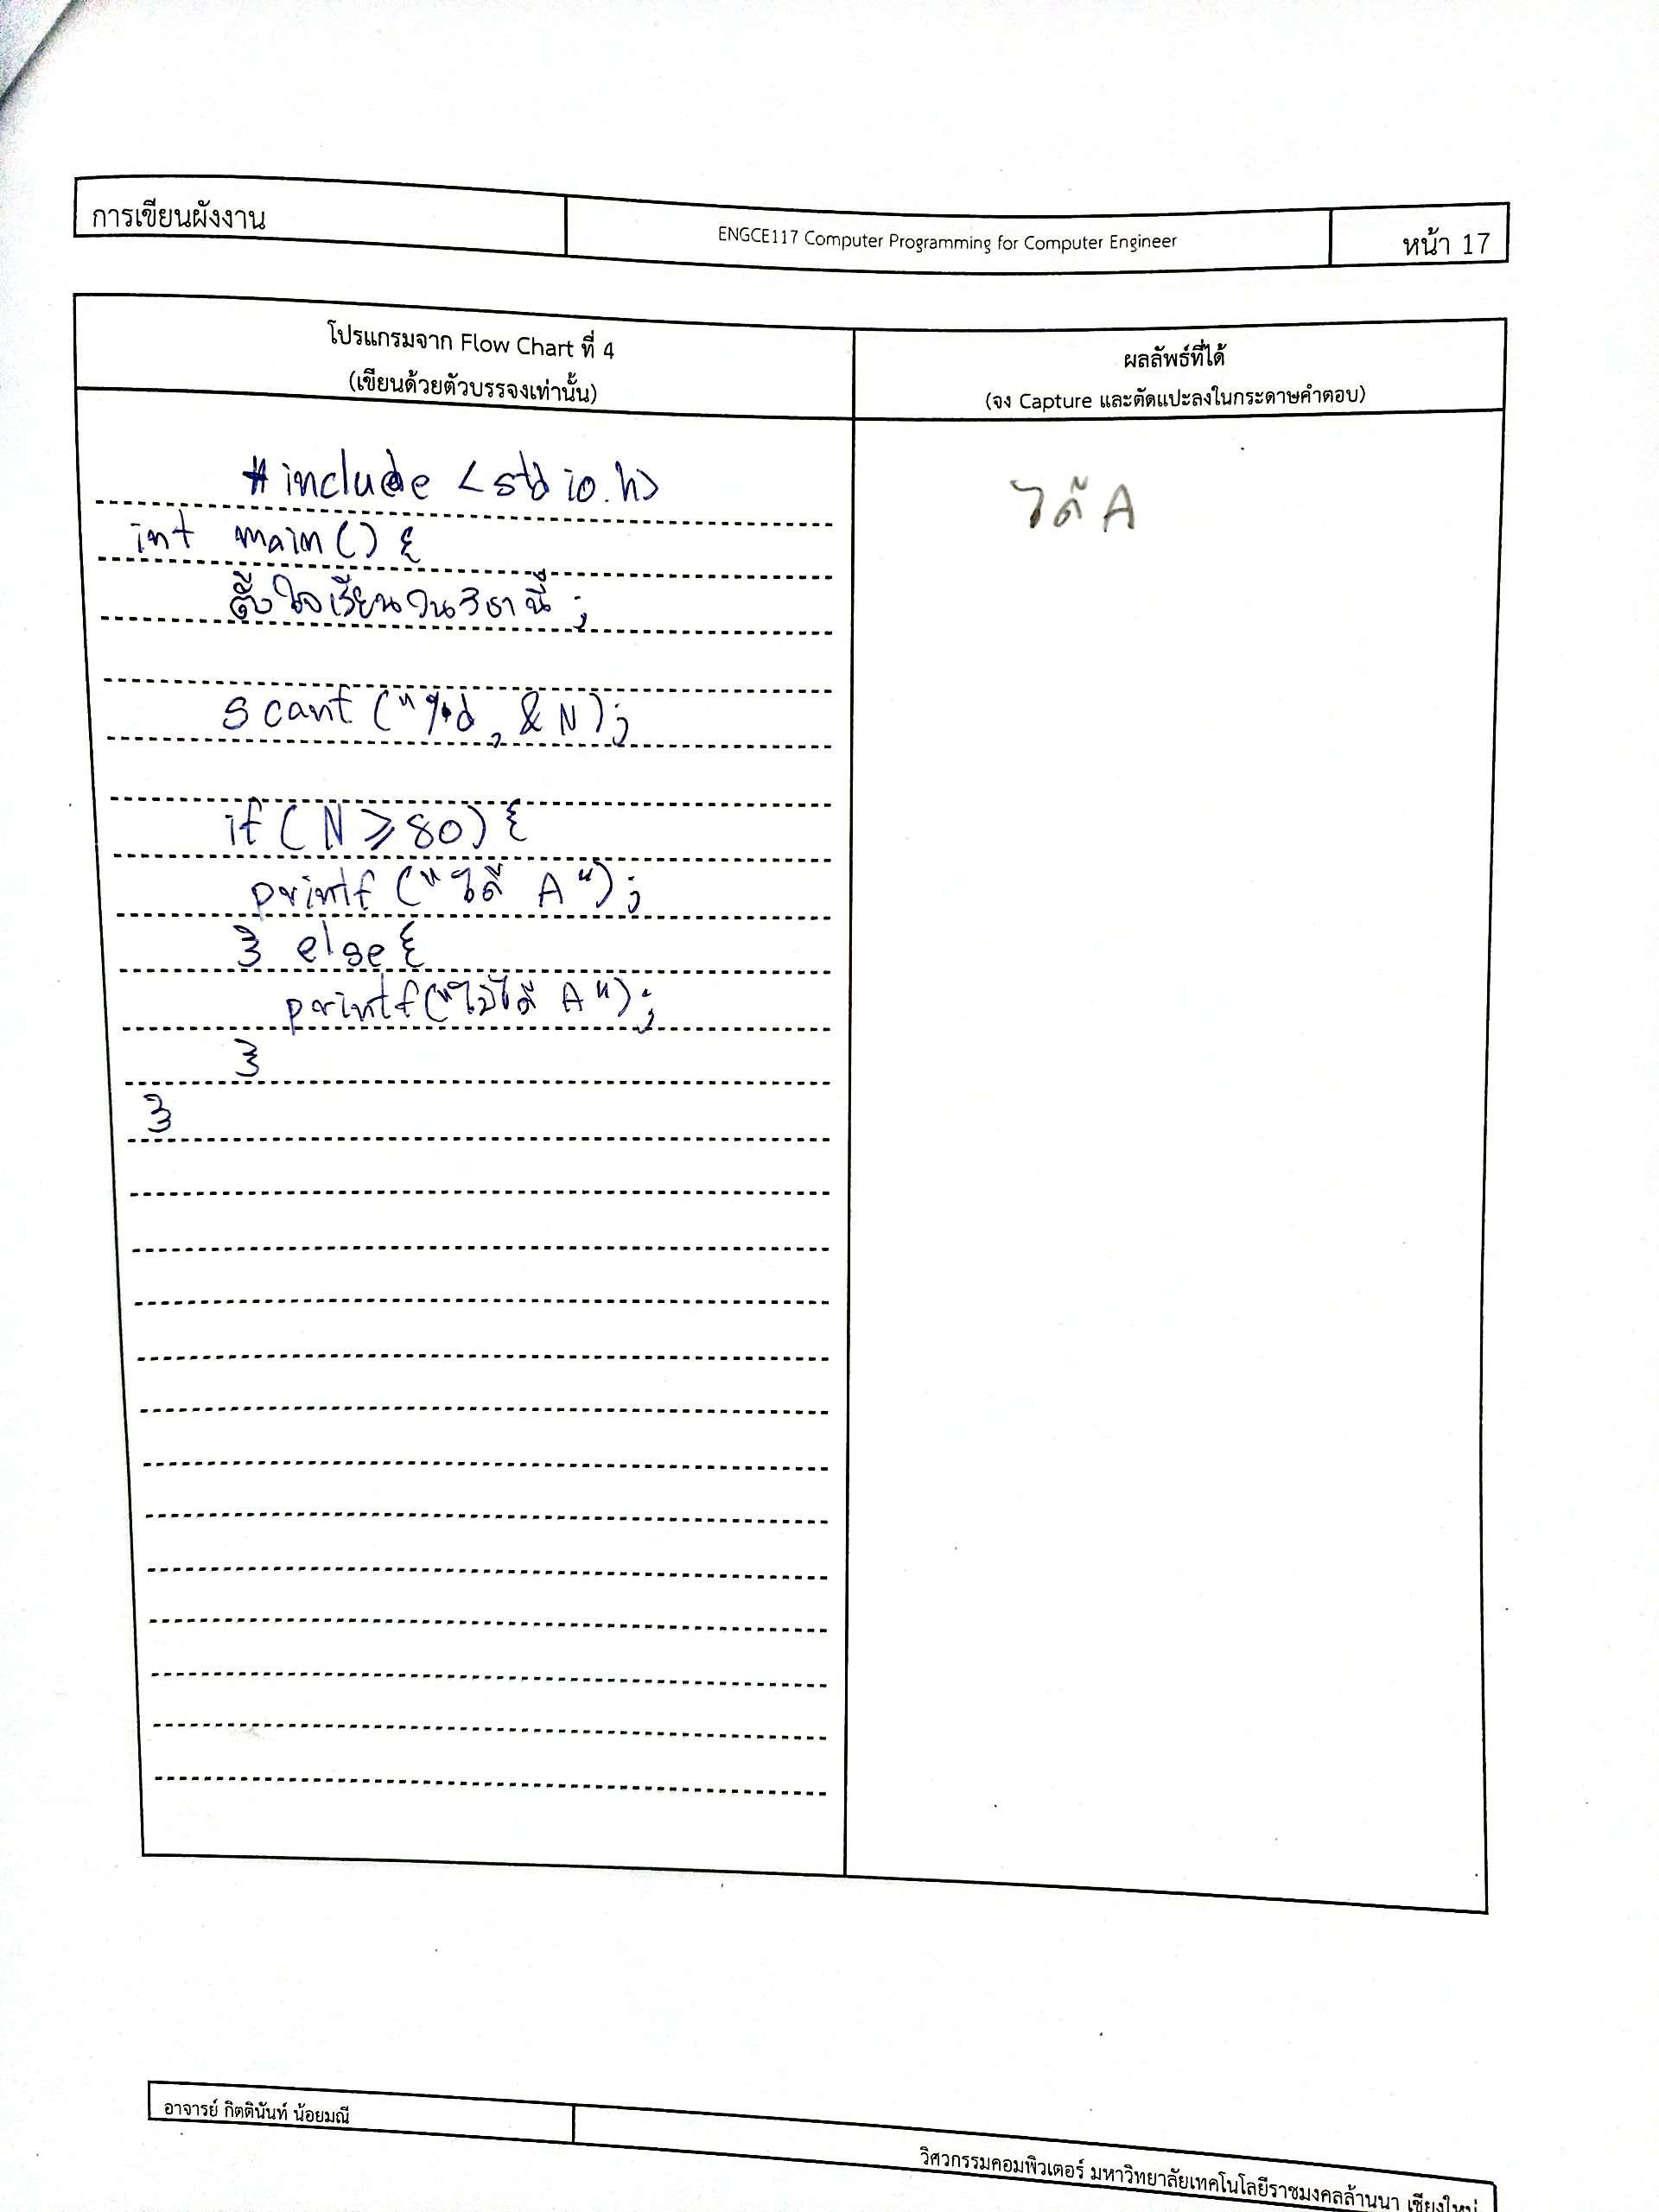 การเขียนผังงาน
ENGCE117 Computer Programming for Computer Engineer
หน้า 17
โปรแกรมจาก Flow Chart ที่ 4
(เขียนด้วยตัวบรรจงเท่านั้น)
ผลลัพธ์ที่ได้
(จง Capture และตัดแปะลงในกระดาษคำตอบ)
#include <stdio.h>
int main() {
ตั้งใจเรียนวิชานี้ ;
scanf ("%d, &N);
if (N ≥ 80) {
printf ("ได้ A");
} else {
printf("ไม่ได้ A");
}
}
ได้ A
อาจารย์ กิตตินันท์ น้อยมณี
วิศวกรรมคอมพิวเตอร์ มหาวิทยาลัยเทคโนโลยีราชมงคลล้านนา เชียงใหม่